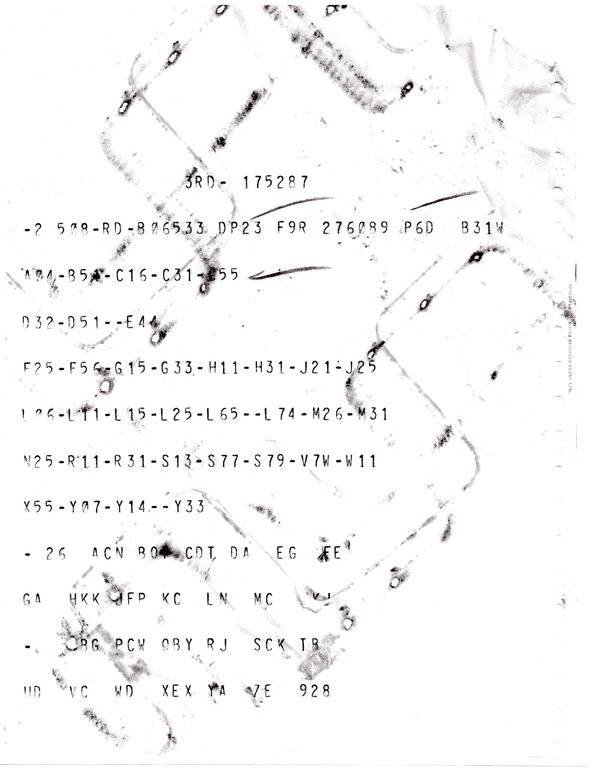 3RD- 175287
-2 508-RD-B06533 DP23 F9R 276089 P6D B31W
A04-B54-C16-C31-C55
D32-D51--E44
F25-F56-G15-G33-H11-H31-J21-J25
L06-L11-L15-L25-L65--L74-M26-M31
N25-R11-R31-S13-S77-S79-V7W-W11
X55-Y07-Y14--Y33
- 26 ACN CDT DA EG FE
GA HKK JFP KC LN MC
- PCW QBY RJ SCK TB
UD VC WD XEX YA ZE 928